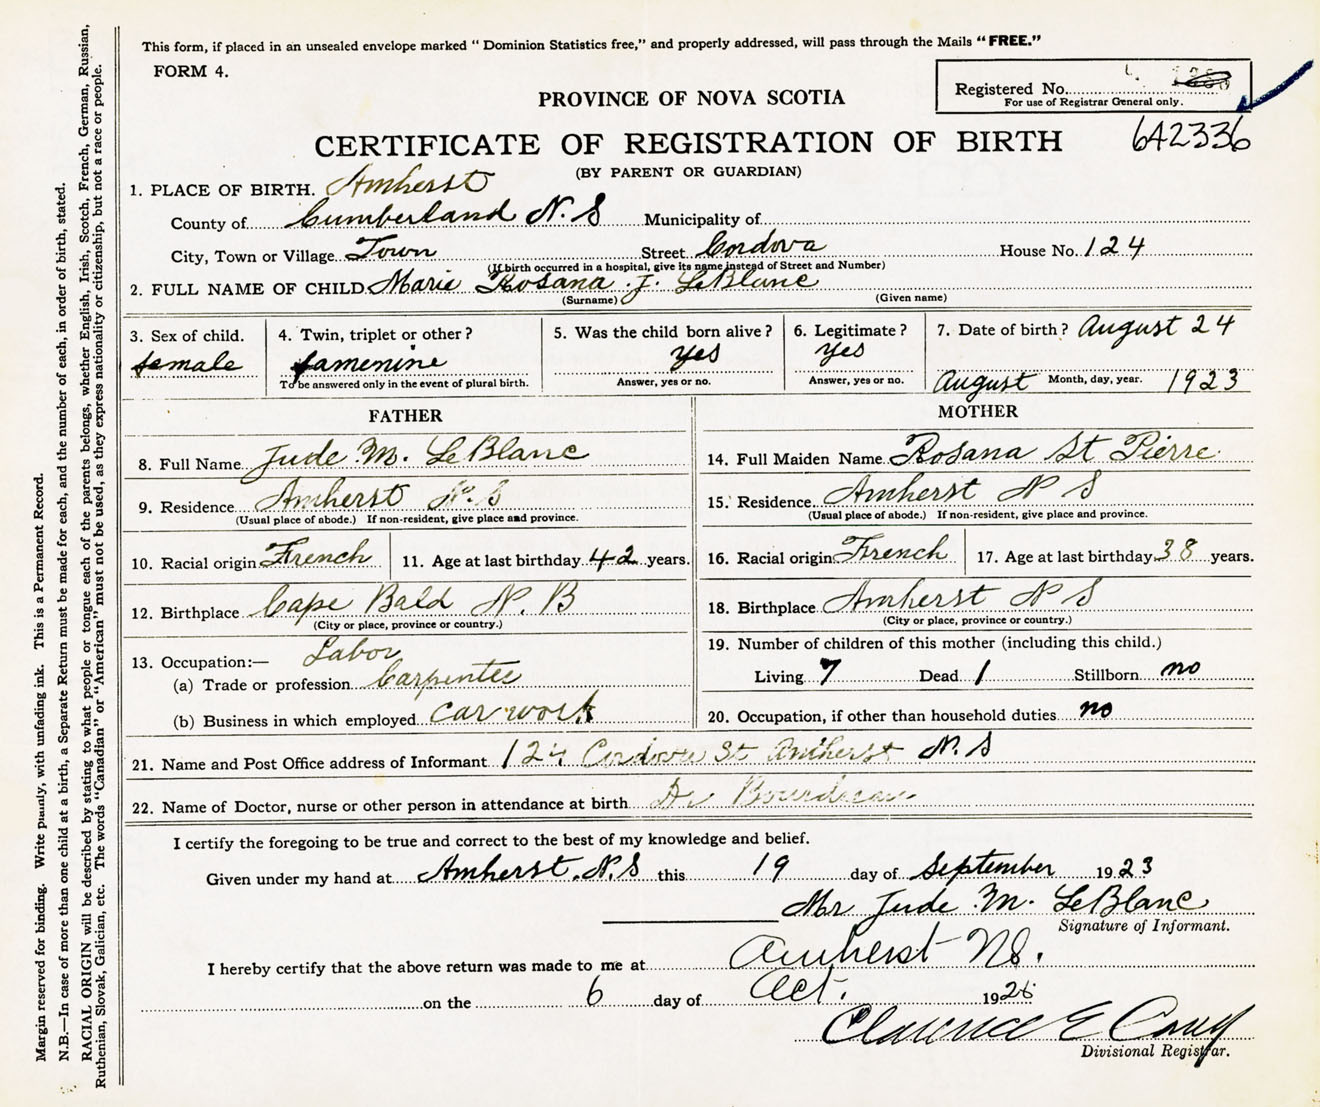 This form, if placed in an unsealed envelope marked "Dominion Statistics free," and properly addressed, will pass through the Mails "FREE."
FORM 4.
Registered No.
For use of Registrar General only.
PROVINCE OF NOVA SCOTIA
CERTIFICATE OF REGISTRATION OF BIRTH
642336
(BY PARENT OR GUARDIAN)
1. PLACE OF BIRTH. Amherst
County of Cumberland N. S Municipality of
City, Town or Village Town Street Cordova House No. 124
(If birth occurred in a hospital, give its name instead of Street and Number)
2. FULL NAME OF CHILD Marie Rosana J. LeBlanc
(Surname) (Given name)
3. Sex of child. female
4. Twin, triplet or other? famenine
To be answered only in the event of plural birth.
5. Was the child born alive? yes
Answer, yes or no.
6. Legitimate? yes
Answer, yes or no.
7. Date of birth? August 24
August Month, day, year. 1923
FATHER
8. Full Name Jude M. LeBlanc
9. Residence Amherst N.S
(Usual place of abode.) If non-resident, give place and province.
10. Racial origin French 11. Age at last birthday 42 years.
12. Birthplace Cape Bald N. B
(City or place, province or country.)
13. Occupation:— Labor
(a) Trade or profession Carpenter
(b) Business in which employed car work
MOTHER
14. Full Maiden Name Rosana St Pierre
15. Residence Amherst N S
(Usual place of abode.) If non-resident, give place and province.
16. Racial origin French 17. Age at last birthday 38 years.
18. Birthplace Amherst N S
(City or place, province or country.)
19. Number of children of this mother (including this child.)
Living 7 Dead 1 Stillborn no
20. Occupation, if other than household duties no
21. Name and Post Office address of Informant 124 Cordova St Amherst N. S
22. Name of Doctor, nurse or other person in attendance at birth Dr Bourdreau
I certify the foregoing to be true and correct to the best of my knowledge and belief.
Given under my hand at Amherst N.S this 19 day of September 1923
Mr Jude M. LeBlanc
Signature of Informant.
I hereby certify that the above return was made to me at Amherst NS.
on the 6 day of Oct. 1926
Clarence E
Divisional Registrar.
Margin reserved for binding. Write plainly, with unfading ink. This is a Permanent Record.
N.B.—In case of more than one child at a birth, a Separate Return must be made for each, and the number of each, in order of birth, stated.
RACIAL ORIGIN will be described by stating to what people or tongue each of the parents belongs, whether English, Irish, Scotch, French, German, Russian,
Ruthenian, Slovak, Galician, etc. The words "Canadian" or "American" must not be used, as they express nationality or citizenship, but not a race or people.